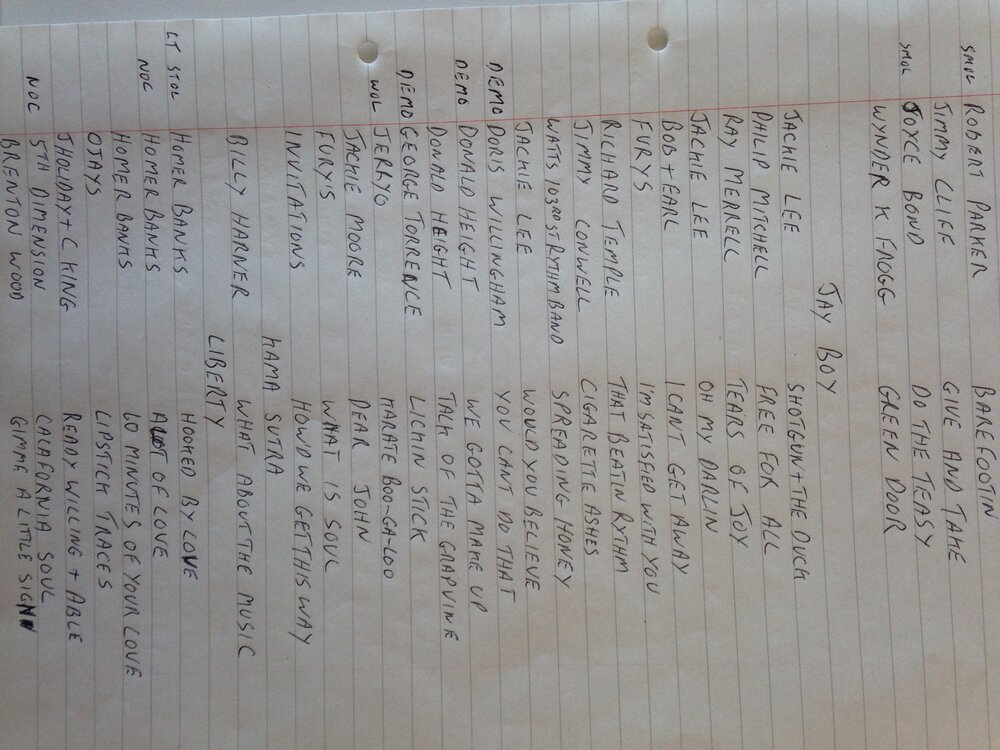 SMOL ROBERT PARKER BAREFOOTIN
JIMMY CLIFF GIVE AND TAKE
SMOL JOYCE BOND DO THE TEASY
WYNDER K FROGG GREEN DOOR
JAY BOY
JACKIE LEE SHOTGUN+THE DUCK
PHILIP MITCHELL FREE FOR ALL
RAY MERRELL TEARS OF JOY
JACKIE LEE OH MY DARLIN
BOB + EARL I CANT GET AWAY
FURYS IM SATISFED WITH YOU
RICHARD TEMPLE THAT BEATIN RYTHM
JIMMY CONWELL CIGARETTE ASHES
WATTS 103RD ST RYTHM BAND SPREADING HONEY
JACKIE LEE WOULD YOU BELIEVE
DEMO DORIS WILLINGHAM YOU CANT DO THAT
DEMO DONALD HEIGHT WE GOTTA MAKE UP
DONALD HEIGHT TALK OF THE GRAPVINE
DEMO GEORGE TORRENCE LICKIN STICK
WOL JERRYO KARATE BOO-GA-LOO
JACKIE MOORE DEAR JOHN
FURY'S WHAT IS SOUL
INVITATIONS HOW'D WE GET THIS WAY
KAMA SUTRA
BILLY HARNER WHAT ABOUT THE MUSIC
LIBERTY
LT STOL HOMER BANKS HOOKED BY LOVE
NOC HOMER BANKS A LOT OF LOVE
HOMER BANKS 60 MINUTES OF YOUR LOVE
OJAYS LIPSTICK TRACES
J HOLIDAY + C KING READY WILLING + ABLE
NOC 5TH DIMENSION CALAFORNIA SOUL
BRENTON WOOD GIMME A LITTLE SIGN